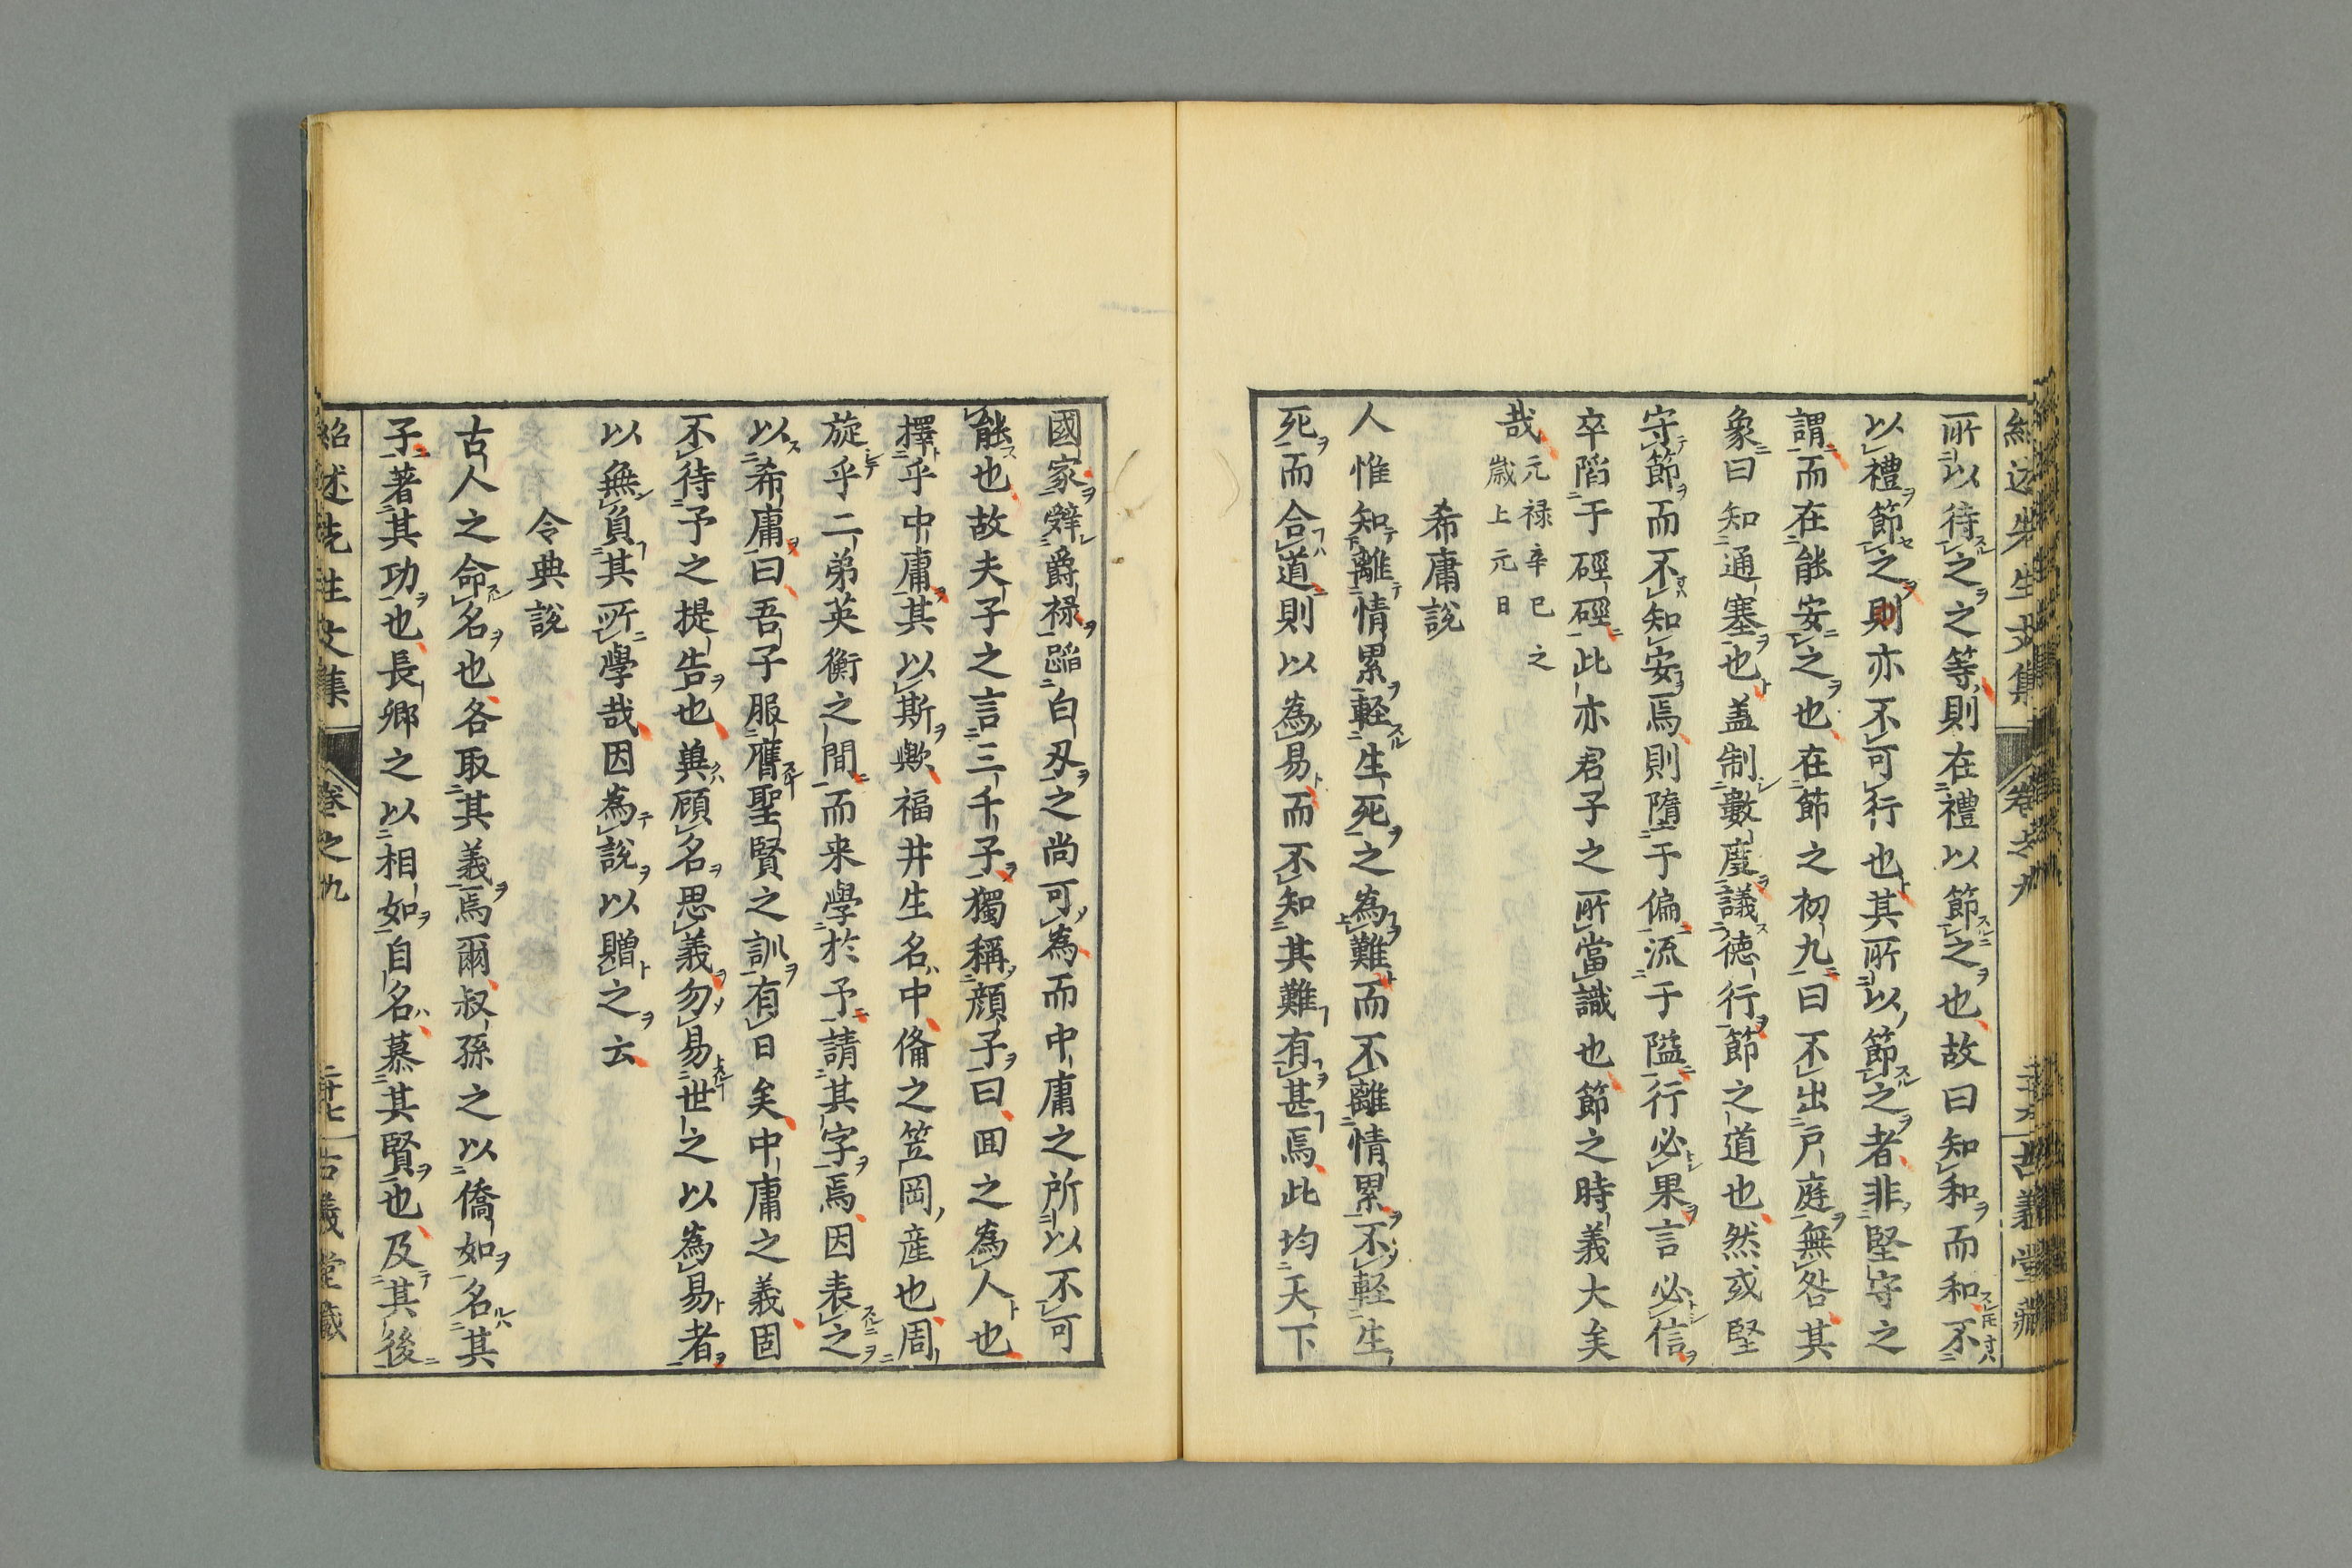 紹述先生文集 卷之九 古義堂藏
所以待之之等則在禮以節之也故曰知和而和不
以禮節之則亦不可行也其所以節之者非堅守之
謂而在能安之也在節之初九曰不出戸庭無咎其
象曰知通塞也盖制數度議德行節之道也然或堅
守節而不知安焉則墮于偏流于隘行必果言必信
卒陷于硜硜此亦君子之所當識也節之時義大矣
哉元禄辛巳之
歳上元日
希庸說
人惟知離情累輕生死之為難而不離情累不輕生
死而合道則以為易而不知其難有甚焉此均天下
國家辭爵禄蹈白刃之尚可為而中庸之所以不可
能也故夫子之言三千子獨稱顏子曰回之為人也
擇乎中庸其以斯歟福井生名中脩之笠岡産也周
旋乎二弟英衡之間而来學於予請其字焉因表之
以希庸曰吾子服膺聖賢之訓有日矣中庸之義固
不待予之提告也冀顧名思義勿易世之以為易者
以無負其所學哉因為說以贈之云
令典說
古人之命名也各取其義焉爾叔孫之以僑如名其
子著其功也長卿之以相如自名慕其賢也及其後
紹述先生文集 卷之九 二十七 古義堂藏